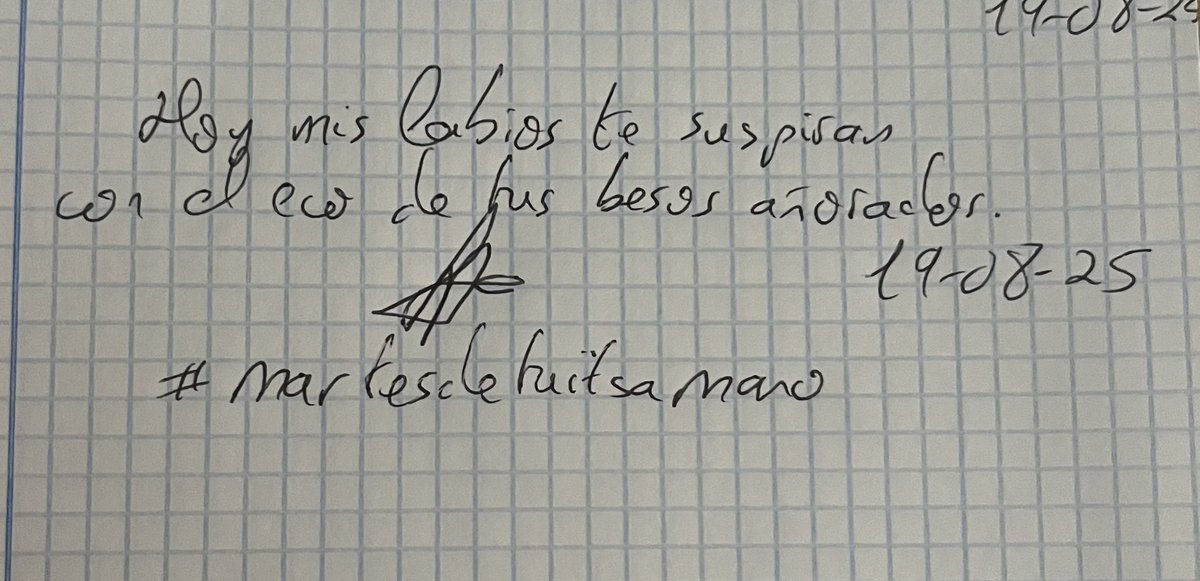 19-08-25
Hoy mis labios te suspiran
con el eco de tus besos añorados.
19-08-25
#martesdetuitsamano